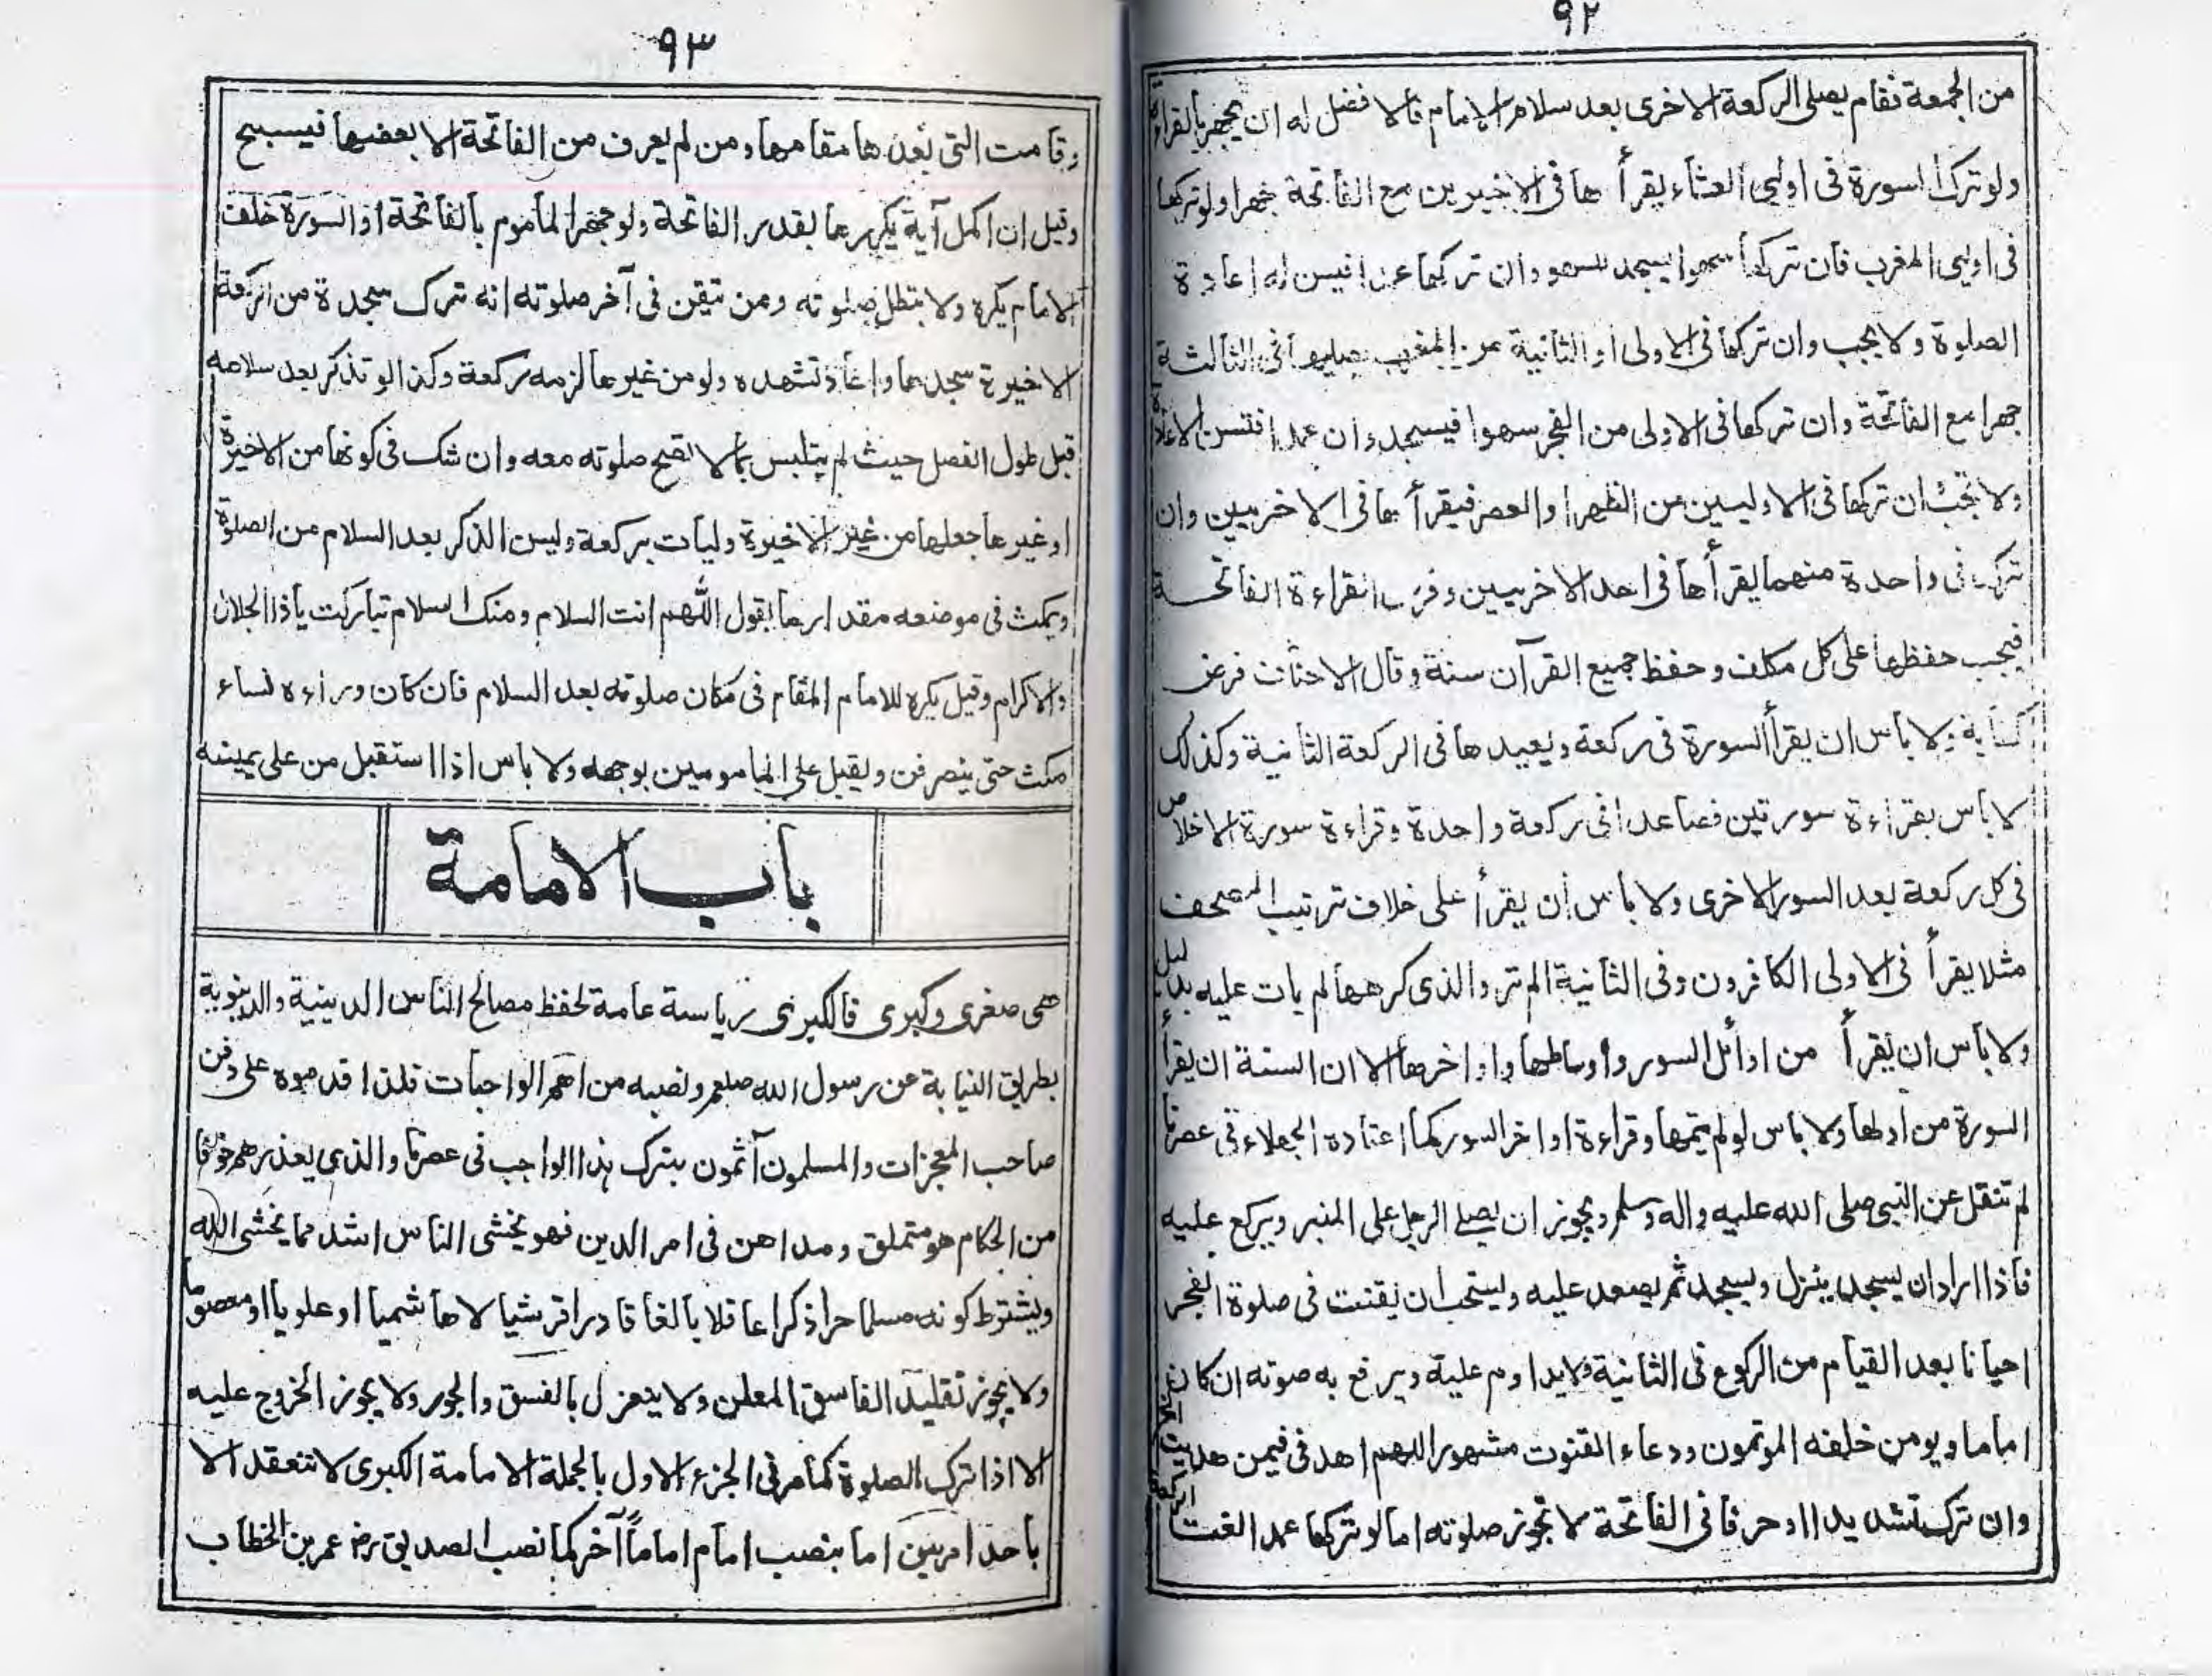 ٩٢
من الجمعة فقام يصلى الركعة الاخرى بعد سلام الامام فالا فضل له ان يجهر بالقراءة
ولو ترك السورة فى اوليى العشاء يقرأ ها فى الاخيرين مع الفاتحة جهرا ولو تركها
فى اوليى المغرب فان تركها سهوا يسجد للسهو وان تركها عمدا فيسن له اعادة
الصلوة ولا يجب وان تركها فى الاولى او الثانية من المغرب يصليها فى الثالثة
جهرا مع الفاتحة وان تركها فى الاولى من الفجر سهوا فيسجد وان عمدا فتسن الاعادة
ولا تجب ان تركها فى الاوليين من الظهر او العصر فيقرأ بها فى الاخريين وان
ترك فى واحدة منهما يقرأها فى احد الاخريين وفرض القراءة الفاتحة
فيجب حفظها على كل مكلف وحفظ جميع القرآن سنة وقال الاحناف فرض
كفاية ولا باس ان يقرأ السورة فى ركعة ويعيدها فى الركعة الثانية وكذلك
لا باس بقراءة سورتين فصاعدا فى ركعة واحدة وقراءة سورة الاخلاص
فى كل ركعة بعد السور الاخرى ولا باس أن يقرأ على خلاف ترتيب المصحف
مثلا يقرأ فى الاولى الكافرون وفى الثانية الم تر والذى كرهها لم يات عليه بدليل
ولا باس ان يقرأ من اوائل السور واوساطها واواخرها الا ان السنة ان يقرأ
السورة من اولها ولا باس لو لم يتمها وقراءة اواخر السور كما اعتاده الجهلاء فى عصرنا
لم تنقل عن النبى صلى الله عليه واله وسلم ويجوز ان يصلى الرجل على المنبر ويركع عليه
فاذا اراد ان يسجد ينزل ويسجد ثم يصعد عليه ويستحب ان يقنت فى صلوة الفجر
احيانا بعد القيام من الركوع فى الثانية فلا يداوم عليه ويرفع به صوته ان كان
اماما ويومن خلفه الموتمون ودعاء القنوت مشهور اللهم اهدنى فيمن هديت
وان ترك تشديدا او حرفا فى الفاتحة لا تجوز صلوته اما لو تركها عمدا لغت
٩٣
وقامت التى بعدها مقامها ومن لم يعرف من الفاتحة الا بعضها فيسبح
وقيل ان اكمل آية يكررها بقدر الفاتحة ولو جهر المأموم بالفاتحة او السورة خلف
الامام يكره ولا يبطل صلوته ومن تيقن فى آخر صلوته انه ترك سجدة من الركعة
الاخيرة سجدها واعاد تشهده ولو من غيرها لزمه ركعة وكذا لو تذكر بعد سلامه
قبل طول الفصل حيث لم يتلبس بما لا تصح صلوته معه وان شك فى كونها من الاخيرة
او غيرها جعلها من غير الاخيرة وليات بركعة وليس الذكر بعد السلام من الصلوة
ويمكث فى موضعه مقدار ما يقول اللهم انت السلام ومنك السلام تباركت ياذا الجلال
والاكرام وقيل يكره للامام المقام فى مكان صلوته بعد السلام فان كان وراءه نساء
مكث حتى ينصرفن ويقبل على المامومين بوجهه ولا باس اذا استقبل من على يمينه
باب الامامة
هى صغرى وكبرى فالكبرى رياسة عامة لحفظ مصالح الناس الدينية والدنيوية
بطريق النيابة عن رسول الله صلعم ونصبه من اهم الواجبات فلذا قدموه على دفن
صاحب المعجزات والمسلمون آثمون بترك هذا الواجب فى عصرنا والذى يعذرهم خوفا
من الحكام هو متملق ومداهن فى امر الدين فهو يخشى الناس اشد مما يخشى الله
ويشترط كونه مسلما حرا ذكرا عاقلا بالغا قادرا قرشيا لا هاشميا او علويا او معصوما
ولا يجوز تقليد الفاسق المعلن ولا ينعزل بالفسق والجور ولا يجوز الخروج عليه
الا اذا ترك الصلوة كما مر فى الجزء الاول بالجملة الامامة الكبرى لا تنعقد الا
باحد امرين اما بنصب امام اماماً آخر كما نصب الصديق رض عمر بن الخطاب